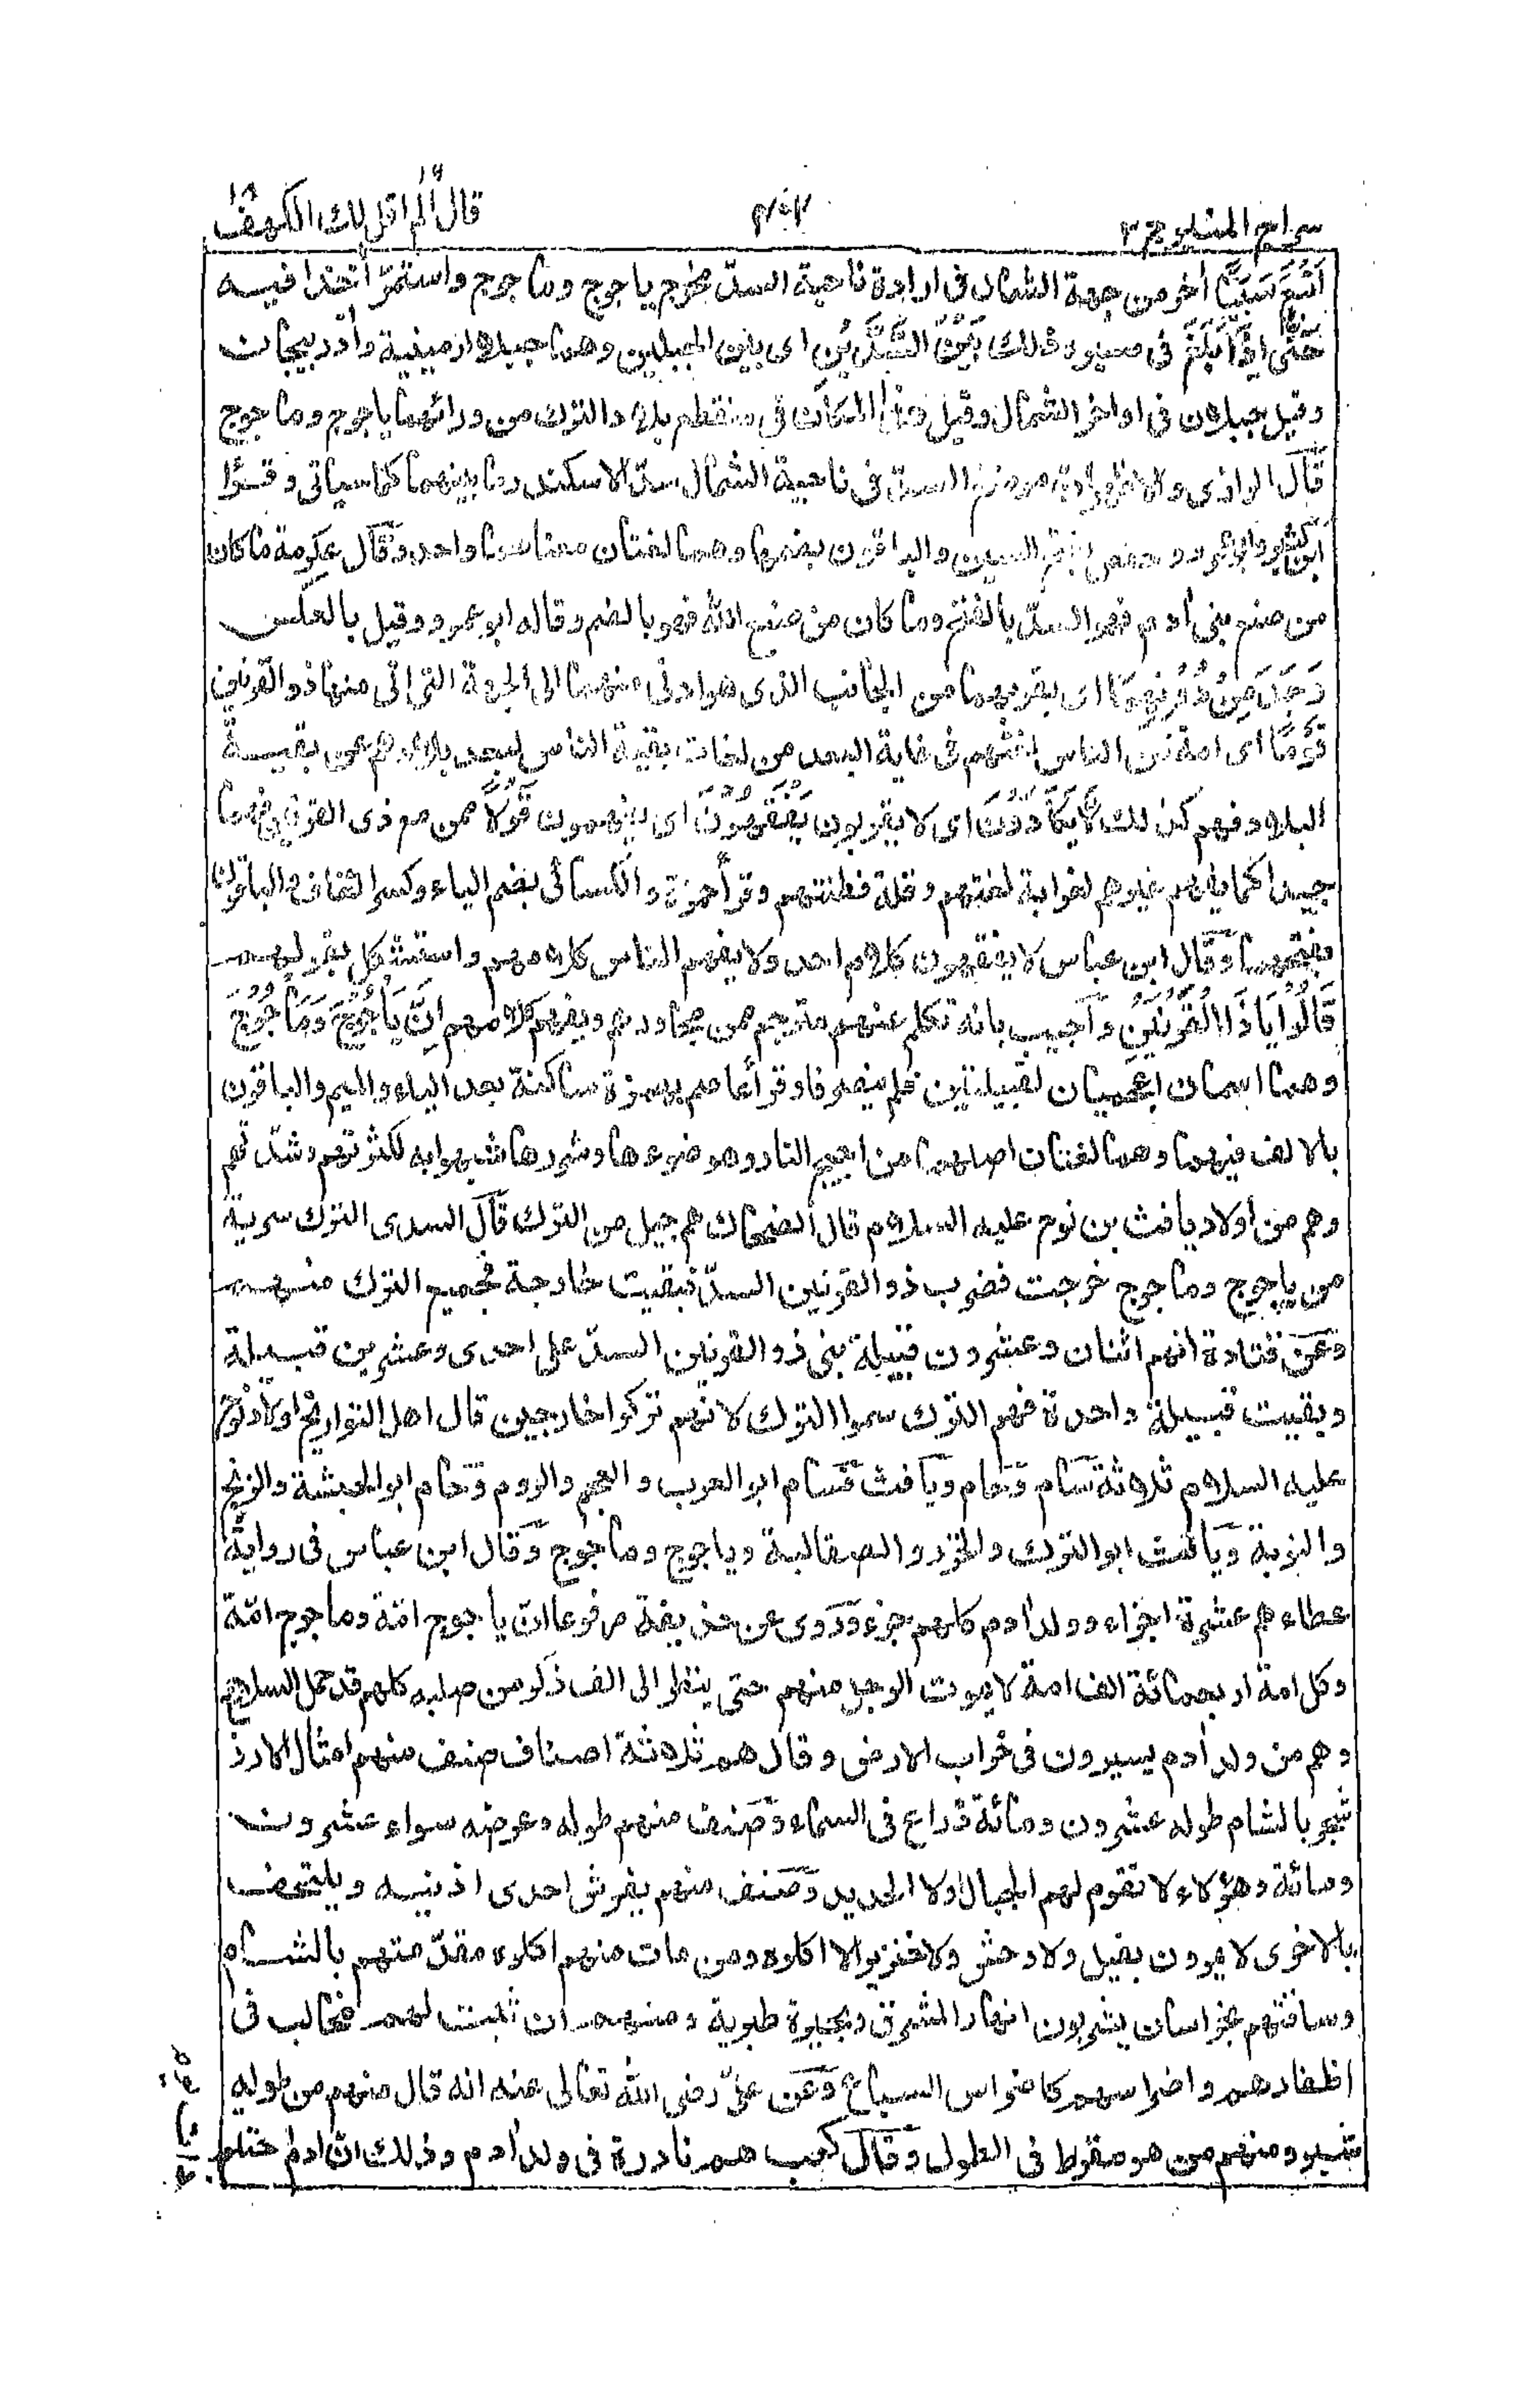 سراج المنير ج ٢
٤٠٢
قال ألم اقل لك ١٦ الكهف ١٨
أَتْبَعَ سَبَبًا أخر من جهة الشمال فى ارادة ناحية السدّ مخرج ياجوج وماجوج واستمرّ أخذا فيه
حَتّٰى اِذَا بَلَغَ فى مسيره ذلك بَيْنَ السَّدَّيْنِ اى بين الجبلين وهما جبلا ارمينية وأذربيجان
وقيل جبلان فى اواخر الشمال وقيل هذا المكان فى منقطع بلاد الترك من ورائهما ياجوج وماجوج
قال الرازى والاظهر انّ موضع السدّ فى ناحية الشمال سدّ الاسكندر ما بينهما كما سياتى وقرأ
ابن كثير وابو عمرو وحفص بفتح السين والباقون بضمها وهما لغتان معناهما واحد وقال عكرمة ما كان
من صنع بنى أدم فهو السدّ بالفتح وما كان من صنع الله فهو بالضم وقاله ابو عمرو وقيل بالعكس
وَجَدَ مِنْ دُوْنِهِمَا اى بقربهما من الجانب الذى هو ادنى منهما الى الجهة التى اتى منها ذو القرنين
قَوْمًا اى امة من الناس لغتهم فى غاية البعد من لغات بقية الناس لبعد بلادهم عن بقية
البلاد فهم كذلك لَّا يَكَادُوْنَ اى لا يقربون يَفْقَهُوْنَ اى يفهمون قَوْلًا ممن مع ذى القرنين فهما
جيدا كما يفهم غيرهم لغرابة لغتهم وقلة فطنتهم وقرأ حمزة والكسائى بضم الياء وكسر القاف والباقون
بفتحهما وقال ابن عباس لا يفقهون كلام احد ولا يفهم الناس كلامهم واستشكل بقولهم
قَالُوْا يَا ذَا الْقَرْنَيْنِ وأجيب بانه تكلم عنهم مترجم ممن مجاورهم ويفهم كلامهم اِنَّ يَاْجُوْجَ وَمَاْجُوْجَ
وهما اسمان اعجميان لقبيلتين فلم ينصرفا وقرأ عاصم بهمزة ساكنة بعد الياء والميم والباقون
بالالف فيهما وهما لغتان اصلهما من اجيج النار وهو ضوءها وشررها شبهوا به لكثرتهم وشدّتهم
وهم من أولاد يافث بن نوح عليه السلام قال الضحاك هم جيل من الترك قال السدى الترك سرية
من ياجوج وماجوج خرجت فضرب ذو القرنين السدّ فبقيت خارجة فجميع الترك منهم
وعن قتادة انهم اثنان وعشرون قبيلة بنى ذو القرنين السدّ على احدى وعشرين قبيلة
وبقيت قبيلة واحدة فهم الترك سموا الترك لانهم تركوا خارجين قال اهل التواريخ اولاد نوح
عليه السلام ثلاثة سام وحام ويافث فسام ابو العرب والعجم والروم وحام ابو الحبشة والزنج
والنوبة ويافث ابو الترك والخزر والصقالبة وياجوج وماجوج وقال ابن عباس فى رواية
عطاء هم عشرة اجزاء وولد أدم كلهم جزء وروى عن حذيفة مرفوعا ان ياجوج امّة وماجوج امّة
وكل امة اربعمائة الف امة لا يموت الرجل منهم حتى ينظر الى الف ذكر من صلبه كلهم قد حمل السلاح
وهم من ولد أدم يسيرون فى خراب الارض وقال هم ثلاثة اصناف صنف منهم امثال الارز
شجر بالشام طوله عشرون ومائة ذراع فى السماء وصنف منهم طوله وعرضه سواء عشرون
ومائة وهؤلاء لا تقوم لهم الجبال ولا الحديد وصنف منهم يفرش احدى اذنيه ويلتحف
بالاخرى لا يمرون بفيل ولا وحش ولا خنزير الا اكلوه ومن مات منهم اكلوه مقدّمتهم بالشام
وساقتهم بخراسان يشربون انهار المشرق وبحيرة طبرية ومنهم من ثبتت لهم مخالب فى
اظفارهم واضراسهم كاضراس السباع وعن علىّ رضى الله تعالى عنه انه قال منهم من طوله
شبر ومنهم من هو مفرط فى الطول وقال كعب هم نادرة فى ولد أدم وذلك انّ أدم احتلم